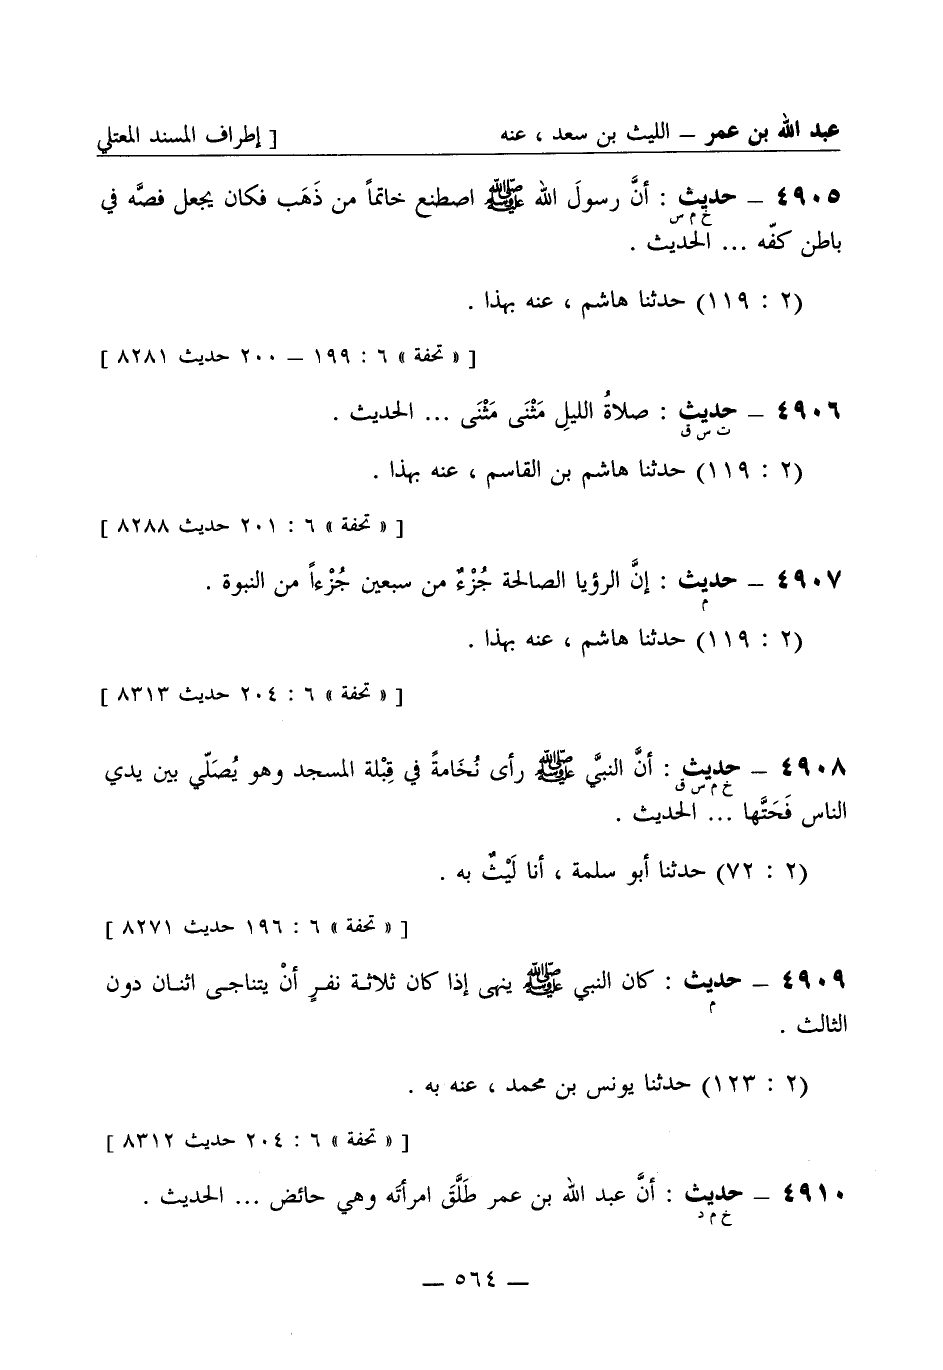 عبد الله بن عمر – الليث بن سعد ، عنه [ إطراف المسند المعتلي
٤٩٠٥ – حديث : أنَّ رسولَ الله ﷺ اصطنع خاتماً من ذَهَب فكان يجعل فصَّه في
خ م س
باطن كفّه ... الحديث .
(٢ : ١١٩) حدثنا هاشم ، عنه بهذا .
[ « تحفة » ٦ : ١٩٩ – ٢٠٠ حديث ٨٢٨١ ]
٤٩٠٦ – حديث : صلاةُ الليلِ مَثْنَى مَثْنَى ... الحديث .
ت س ق
(٢ : ١١٩) حدثنا هاشم بن القاسم ، عنه بهذا .
[ « تحفة » ٦ : ٢٠١ حديث ٨٢٨٨ ]
٤٩٠٧ – حديث : إنَّ الرؤيا الصالحة جُزْءٌ من سبعين جُزْءاً من النبوة .
م
(٢ : ١١٩) حدثنا هاشم ، عنه بهذا .
[ « تحفة » ٦ : ٢٠٤ حديث ٨٣١٣ ]
٤٩٠٨ – حديث : أنَّ النبيَّ ﷺ رأى نُخَامةً في قِبْلة المسجد وهو يُصَلّي بين يدي
خ م س ق
الناس فَحَتَّها ... الحديث .
(٢ : ٧٢) حدثنا أبو سلمة ، أنا لَيْثٌ به .
[ « تحفة » ٦ : ١٩٦ حديث ٨٢٧١ ]
٤٩٠٩ – حديث : كان النبي ﷺ ينهى إذا كان ثلاثة نفرٍ أنْ يتناجى اثنان دون
م
الثالث .
(٢ : ١٢٣) حدثنا يونس بن محمد ، عنه به .
[ « تحفة » ٦ : ٢٠٤ حديث ٨٣١٢ ]
٤٩١٠ – حديث : أنَّ عبد الله بن عمر طَلَّقَ امرأتَه وهي حائض ... الحديث .
خ م د
– ٥٦٤ –